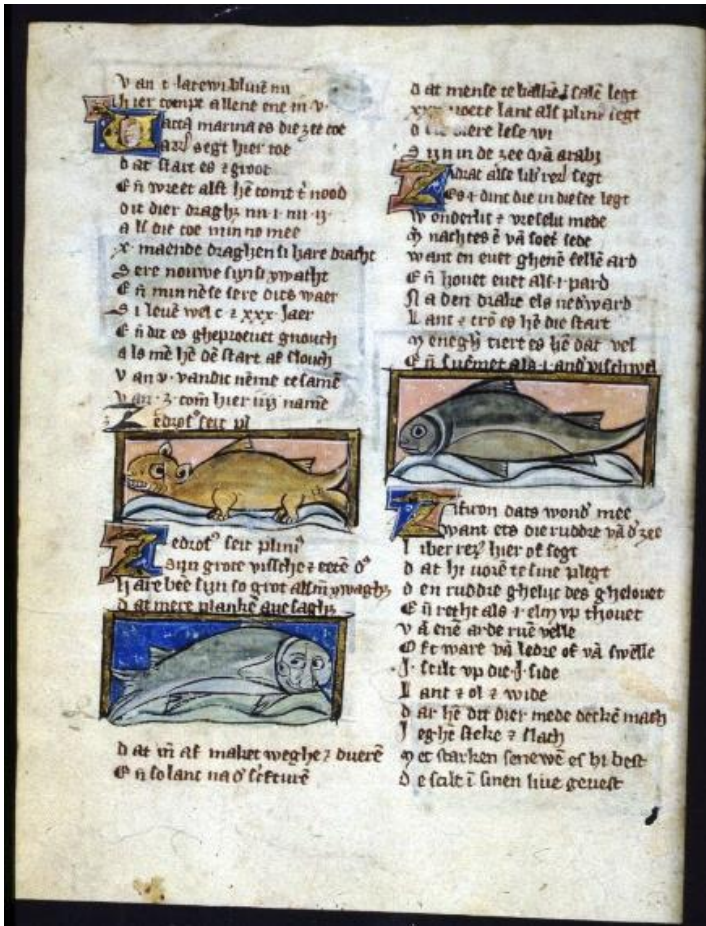 Van t latewi bliuē nu
Hier coempt allene ene in v
acca marina es die zee coe
segt hier toe
dat start es ⁊ groot
Eñ wreet alst hē comt tʼ nood
dit dier draghʒ
als die coe min no mee
x· maende draghen si hare dracht
Sere nouwe sijnsi ywacht
Eñ minnēse sere dits waer
Si leuē wel c ⁊ xxx· Jaer
Eñ dit es gheproeuet gnouch
als mē hē dē start af slouch
van v· vandit nēme te samē
van ·z· com hier iiij namē
Zedrosʼ seit pl
Zedrosʼ seit pliniʼ
Sijn grote vissche ⁊ eetē
hare beē sijn so grot ywaghʒ
dat mere planke aue saghʒ
dat maket weghe ⁊ duerē
Eñ so lanc
dat mense te balkē ĩ salē legt
xxx voete lanc als plinʼ segt
diere lese wi
Sijn in de zee vā arabʒ
Zidrat alse segt
Es ·i· dinc die in die see legt
wonderlic ⁊ vreselic mede
nachtes ē vā soet sede
want en euet ghenē fellē ard
Eñ houet euet als ·i· pard
Na den drake els nedʼward
Lanc ⁊ crō es hē die start
Menegʒ tiert es hē dat vel
Eñ suēmet als ·i· andʼ visch wel
Zitiron dats wondʼ mee
want ets die ruddre vā dʼ zee
Liber rerʒ hier of segt
dat hi uorē te sine plegt
den ruddre ghelijc des ghelouet
Eñ recht als ·i· elm vp thouet
vā enē arde ruē velle
Oft ware vā ledre of vā swelle
·J· scilt vp die ·J· side
Lanc ⁊ ol ⁊ wide
dar hē dit dier mede deckē mach
Jeghē steke ⁊ slach
Met starken senewē es hi best
de scilt ĩ sinen liue geuest